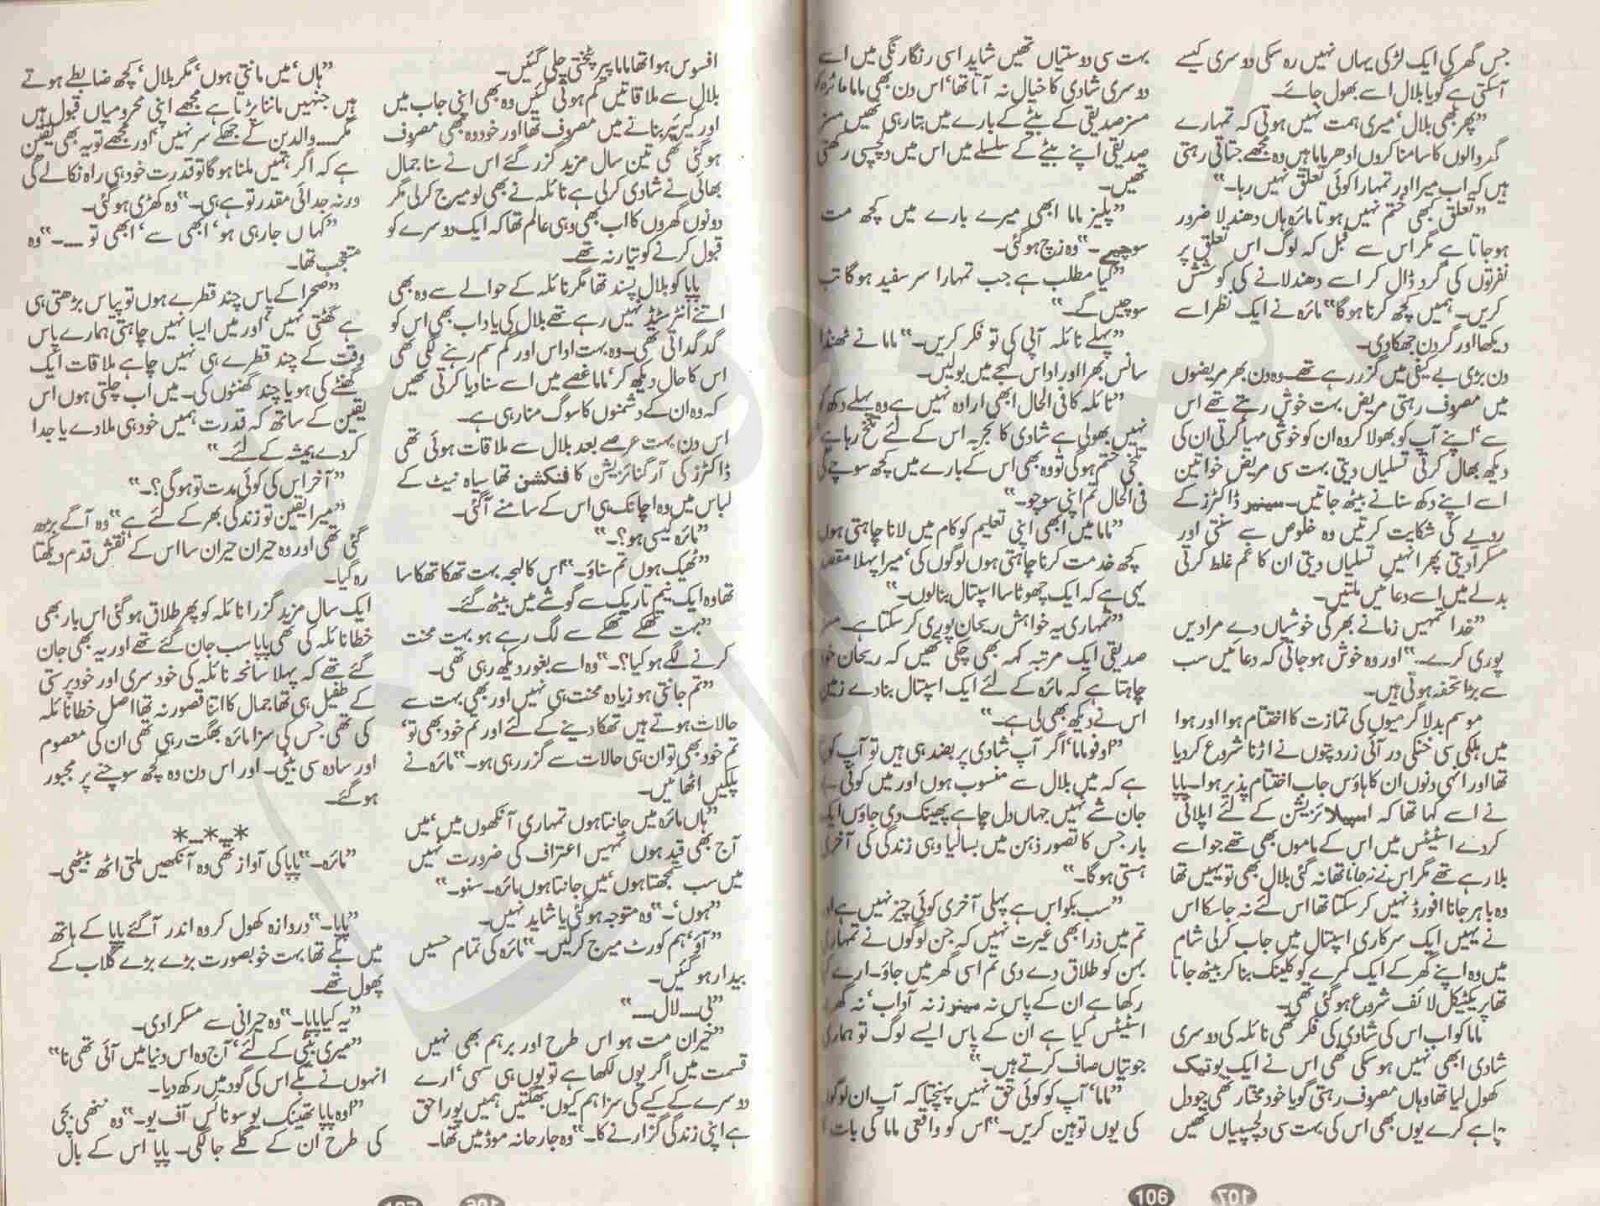 جس گھر کی ایک لڑکی یہاں نہیں رہ سکی دوسری کیسے
آسکتی ہے گویا بلال اسے بھول جائے۔
”پھر بھی بلال‘ میری ہمت نہیں ہوتی کہ تمہارے
گھر والوں کا سامنا کروں ادھر ماما ہیں وہ مجھے جتاتی رہتی
ہیں کہ اب میرا اور تمہارا کوئی تعلق نہیں رہا۔“
”تعلق کبھی ختم نہیں ہوتا مائرہ ہاں دھندلا ضرور
ہوجاتا ہے مگر اس سے قبل کہ لوگ اس تعلق پر
نفرتوں کی گرد ڈال کر اسے دھندلانے کی کوشش
کریں۔ ہمیں کچھ کرنا ہوگا“ مائرہ نے ایک نظر اسے
دیکھا اور گردن جھکا دی۔
دن بڑی بے کیفی میں گزر رہے تھے۔ وہ دن بھر مریضوں
میں مصروف رہتی مریض بہت خوش رہتے تھے اس
سے‘ اپنے آپ کو بھولا کر وہ ان کو خوشی مہیا کرتی ان کی
دیکھ بھال کرتی تسلیاں دیتی بہت سی مریض خواتین
اسے اپنے دکھ سنانے بیٹھ جاتیں۔ سینیر ڈاکٹرز کے
رویے کی شکایت کرتیں وہ خلوص سے سنتی اور
مسکرا دیتی پھر انہیں تسلیاں دیتی ان کا غم غلط کرتی
بدلے میں اسے دعائیں ملتیں۔
”خدا تمہیں زمانے بھر کی خوشیاں دے مرادیں
پوری کرے۔“ اور وہ خوش ہوجاتی کہ دعائیں سب
سے بڑا تحفہ ہوتی ہیں۔
موسم بدلا گرمیوں کی تمازت کا اختتام ہوا اور ہوا
میں ہلکی سی خنکی در آئی زرد پتوں نے اڑنا شروع کردیا
تھا اور انہی دنوں ان کا ہاؤس جاب اختتام پذیر ہوا۔ پاپا
نے اسے کہا تھا کہ اسپیلائزیشن کے لئے اپلائی
کردے اسٹیٹس میں اس کے ماموں بھی تھے جو اسے
بلا رہے تھے مگر اس نے نہ جانا تھا نہ گئی بلال بھی تو یہیں تھا
وہ باہر جانا افورڈ نہیں کرسکتا تھا اس لئے نہ جاسکا اس
نے یہیں ایک سرکاری اسپتال میں جاب کرلی شام
میں وہ اپنے گھر کے ایک کمرے کو کلینک بنا کر بیٹھ جاتا
تھا پریکٹیکل لائف شروع ہوگئی تھی۔
ماما کو اب اس کی شادی کی فکر تھی نائلہ کی دوسری
شادی ابھی نہیں ہوسکی تھی اس نے ایک بوتیک
کھول لیا تھا وہاں مصروف رہتی گویا خود مختار تھی جو دل
چاہے کرے یوں بھی اس کی بہت سی دلچسپیاں تھیں
بہت سی دوستیاں تھیں شاید اسی رنگا رنگی میں اسے
دوسری شادی کا خیال نہ آتا تھا‘ اس دن بھی ماما مائرہ کو
مسز صدیقی کے بیٹے کے بارے میں بتا رہی تھیں مسز
صدیقی اپنے بیٹے کے سلسلے میں اس میں دلچسپی رکھتی
تھیں۔
”پلیز ماما ابھی میرے بارے میں کچھ مت
سوچیے۔“ وہ زچ ہوگئی۔
”کیا مطلب ہے جب تمہارا سر سفید ہوگا تب
سوچیں گے۔“
”پہلے نائلہ آپی کی تو فکر کریں۔“ ماما نے ٹھنڈا
سانس بھرا اور اداس لہجے میں بولیں۔
”نائلہ کا فی الحال ابھی ارادہ نہیں ہے وہ پہلے دکھ کو
نہیں بھولی ہے شادی کا تجربہ اس کے لئے تلخ رہا ہے
تلخی ختم ہوگی تو وہ بھی اس کے بارے میں کچھ سوچے گی
فی الحال تم اپنی سوچو۔“
”ماما میں ابھی اپنی تعلیم کو کام میں لانا چاہتی ہوں
کچھ خدمت کرنا چاہتی ہوں لوگوں کی‘ میرا پہلا مقصد
یہی ہے کہ ایک چھوٹا سا اسپتال بنالوں۔“
”تمہاری یہ خواہش ریحان پوری کرسکتا ہے۔ مسز
صدیقی ایک مرتبہ کہہ بھی چکی تھیں کہ ریحان خود
چاہتا ہے کہ مائرہ کے لئے ایک اسپتال بنادے زمین
اس نے دیکھ بھی لی ہے۔“
”اوفو ماما‘ اگر آپ شادی پر بضد ہی ہیں تو آپ کو
ہے کہ میں بلال سے منسوب ہوں اور میں کوئی بے
جان شے نہیں جہاں دل چاہے پھینک دی جاؤں ایک
بار جس کا تصور ذہن میں بسالیا وہی زندگی کی آخری
ہستی ہوگا۔“
”سب بکواس ہے پہلی آخری کوئی چیز نہیں ہے اور
تم میں ذرا بھی غیرت نہیں کہ جن لوگوں نے تمہاری
بہن کو طلاق دے دی تم اسی گھر میں جاؤ۔ ارے کیا
رکھا ہے ان کے پاس نہ مینرز نہ آداب‘ نہ گھر
اسٹیٹس کیا ہے ان کے پاس ایسے لوگ تو ہماری
جوتیاں صاف کرتے ہیں۔“
”ماما‘ آپ کو کوئی حق نہیں پہنچتا کہ آپ ان لوگوں
کی یوں توہین کریں۔“ اس کو واقعی ماما کی بات کا
106
افسوس ہوا تھا ماما پیر پٹختی چلی گئیں۔
بلال سے ملاقاتیں کم ہوتی گئیں وہ بھی اپنی جاب میں
اور کیریئر بنانے میں مصروف تھا اور خود وہ بھی مصروف
ہوگئی تھی‘ تین سال مزید گزر گئے اس نے سنا جمال
بھائی نے شادی کرلی ہے نائلہ نے بھی لو میرج کرلی مگر
دونوں گھروں کا اب بھی وہی عالم تھا کہ ایک دوسرے کو
قبول کرنے کو تیار نہ تھے۔
پاپا کو بلال پسند تھا مگر نائلہ کے حوالے سے وہ بھی
اتنے انٹرسٹڈ نہیں رہے تھے بلال کی یاد اب بھی اس کو
گدگداتی تھی۔ وہ بہت اداس اور گم سم رہنے لگی تھی
اس کا حال دیکھ کر‘ ماما غصے میں اسے سنا دیا کرتی تھیں
کہ وہ ان کے دشمنوں کا سوگ منا رہی ہے۔
اس دن بہت عرصے بعد بلال سے ملاقات ہوئی تھی
ڈاکٹرز کی آرگنائزیشن کا فنکشن تھا سیاہ نیٹ کے
لباس میں وہ اچانک ہی اس کے سامنے آگئی۔
”مائرہ کیسی ہو؟۔“
”ٹھیک ہوں تم سناؤ۔“ اس کا لہجہ بہت تھکا تھکا سا
تھا وہ ایک نیم تاریک سے گوشے میں بیٹھ گئے۔
”بہت تھکے تھکے سے لگ رہے ہو بہت محنت
کرنے لگے ہو کیا؟۔“ وہ اسے بغور دیکھ رہی تھی۔
”تم جانتی ہو زیادہ محنت ہی نہیں اور بھی بہت سے
حالات ہوتے ہیں تھکا دینے کے لئے اور تم خود بھی تو‘
تم خود بھی تو ان ہی حالات سے گزر رہی ہو۔“ مائرہ نے
پلکیں اٹھائیں۔
”ہاں مائرہ میں جانتا ہوں تمہاری آنکھوں میں‘ میں
آج بھی قید ہوں تمہیں اعتراف کی ضرورت نہیں
میں سب سمجھتا ہوں‘ میں جانتا ہوں مائرہ۔ سنو۔“
”ہوں‘۔“ وہ متوجہ ہوگئی یا شاید نہیں۔
”آؤ‘ ہم کورٹ میرج کرلیں۔“ مائرہ کی تمام حسیں
بیدار ہوگئیں۔
”بی۔۔۔ لال۔۔۔“
”حیران مت ہو اس طرح اور برہم بھی نہیں
قسمت میں اگر یوں لکھا ہے تو یوں ہی سہی‘ ارے
دوسرے کے کیے کی سزا ہم کیوں بھگتیں ہمیں پورا حق
ہے اپنی زندگی گزارنے کا۔“ وہ جارحانہ موڈ میں تھا۔
”ہاں‘ میں مانتی ہوں‘ مگر بلال‘ کچھ ضابطے ہوتے
ہیں جنہیں ماننا پڑتا ہے مجھے اپنی محرومیاں قبول ہیں
مگر۔۔۔ والدین کے جھکے سر نہیں‘ اور مجھے تو یہ بھی یقین
ہے کہ اگر ہمیں ملنا ہوگا تو قدرت خود ہی راہ نکالے گی
ورنہ جدائی مقدر تو ہے ہی۔“ وہ کھڑی ہوگئی۔
”کہاں جارہی ہو‘ ابھی سے‘ ابھی تو ۔۔۔۔“ وہ
متعجب تھا۔
”صحرا کے پاس چند قطرے ہوں تو پیاس بڑھتی ہی
ہے گھٹتی نہیں‘ اور میں ایسا نہیں چاہتی ہمارے پاس
وقت کے چند قطرے ہی نہیں چاہے ملاقات ایک
گھنٹے کی ہو یا چند گھنٹوں کی۔ میں اب چلتی ہوں اس
یقین کے ساتھ کہ قدرت ہمیں خود ہی ملادے یا جدا
کردے ہمیشہ کے لئے۔“
”آخر اس کی کوئی مدت تو ہوگی؟۔“
”میرا یقین تو زندگی بھر کے لئے ہے“ وہ آگے بڑھ
گئی تھی اور وہ حیران حیران سا اس کے نقش قدم دیکھتا
رہ گیا۔
ایک سال مزید گزرا نائلہ کو پھر طلاق ہوگئی اس بار بھی
خطا نائلہ کی تھی پاپا سب جان گئے تھے اور یہ بھی جان
گئے تھے کہ پہلا سانحہ نائلہ کی خود سری اور خود پرستی
کے طفیل ہی تھا جمال کا اتنا قصور نہ تھا اصل خطا نائلہ
کی تھی جس کی سزا مائرہ بھگت رہی تھی ان کی معصوم
اور سادہ سی بیٹی۔ اور اس دن وہ کچھ سوچنے پر مجبور
ہوگئے۔
*_*_*
”مائرہ۔“ پاپا کی آواز تھی وہ آنکھیں ملتی اٹھ بیٹھی۔
”پاپا۔“ دروازہ کھول کر وہ اندر آگئے پاپا کے ہاتھ
میں بکے تھا بہت خوبصورت بڑے بڑے گلاب کے
پھول تھے۔
”یہ کیا پاپا۔“ وہ حیرانی سے مسکرا دی۔
”میری بیٹی کے لئے‘ آج وہ اس دنیا میں آئی تھی نا“
انہوں نے بکے اس کی گود میں رکھ دیا۔
”اوہ پاپا تھینک یو سو نائس آف یو۔“ وہ ننھی بچی
کی طرح ان کے گلے جا لگی۔ پاپا اس کے بال
107